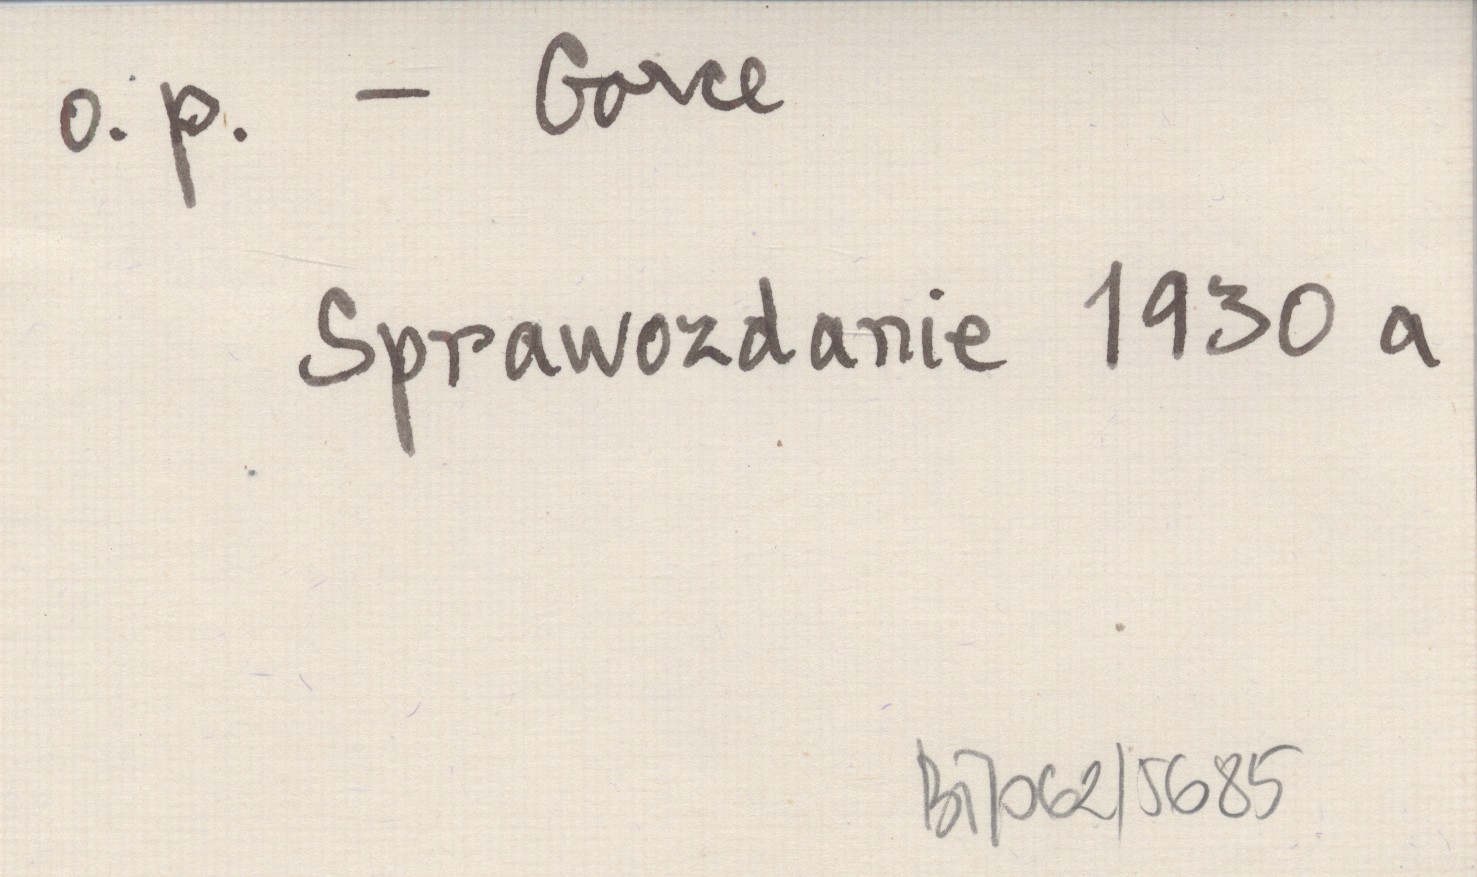 o. p. – Gorce
Sprawozdanie 1930 a
5685